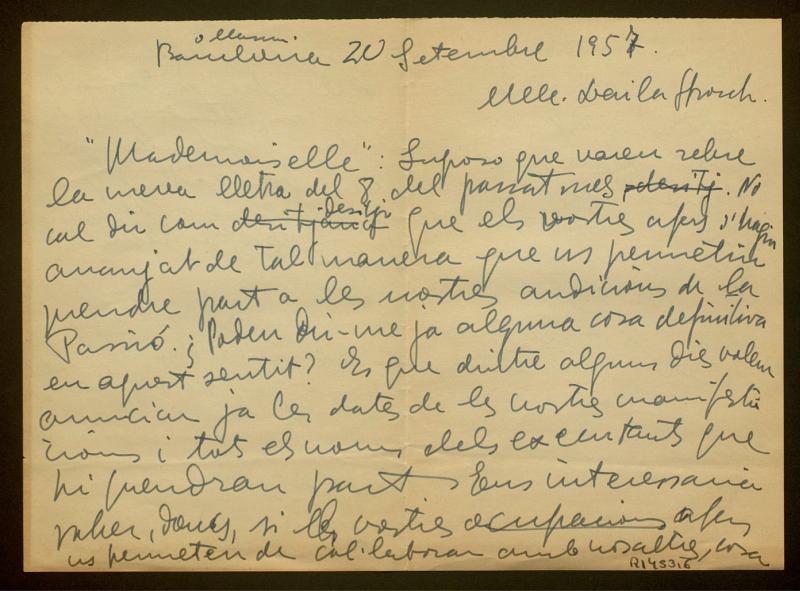 Barcelona 20 Setembre 1957.
Mlle. Laila Storch.
"Mademoiselle": Suposo que varen rebre
la meva lletra del 8 del passat mes, desitj. No
cal dir com desitjaria desitjo que els vostres afers s'hagin
arranjat de tal manera que us permetin
pendre part a les nostres audicions de la
Passió. ¿Poden dir-me ja alguna cosa definitiva
en aquest sentit? Es que dintre alguns dies volem
anunciar ja les dates de les nostres manifesta
cions i tots els noms dels executants que
hi pendran part. Ens interessaria
saber, doncs, si les vostres ocupacions afers
us permeten de col·laborar amb nosaltres, cosa
R145316